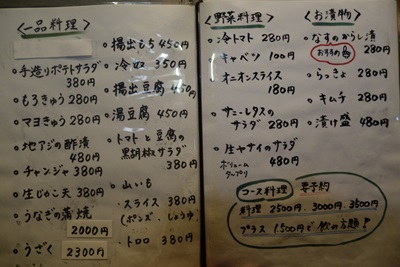 <一品料理>
・手造りポテトサラダ
380円
・もろきゅう 280円
・マヨきゅう 280円
・地アジの酢漬
480円
・チャンジャ 380円
・生じゃこ天 380円
・うなぎの蒲焼
2000円
・うざく 2300円
・揚出もち 450円
・冷奴 350円
・揚出豆腐 450円
・湯豆腐 450円
・トマトと豆腐の
黒胡椒サラダ
380円
・山いも
・スライス 380円
(ポンズ、しょうゆ)
・トロロ 380円
<野菜料理>
・冷トマト 280円
・キャベツ 100円
・オニオンスライス
180円
・サニーレタスの
サラダ 280円
・生ヤサイのサラダ
ボリューム
タップリ 480円
<お漬物>
・なすのからし漬
おすすめ 280円
・らっきょ 280円
・キムチ 280円
・漬け盛 480円
コース料理 要予約
料理 2500円、3000円、3500円
プラス 1,500円で 飲み放題!